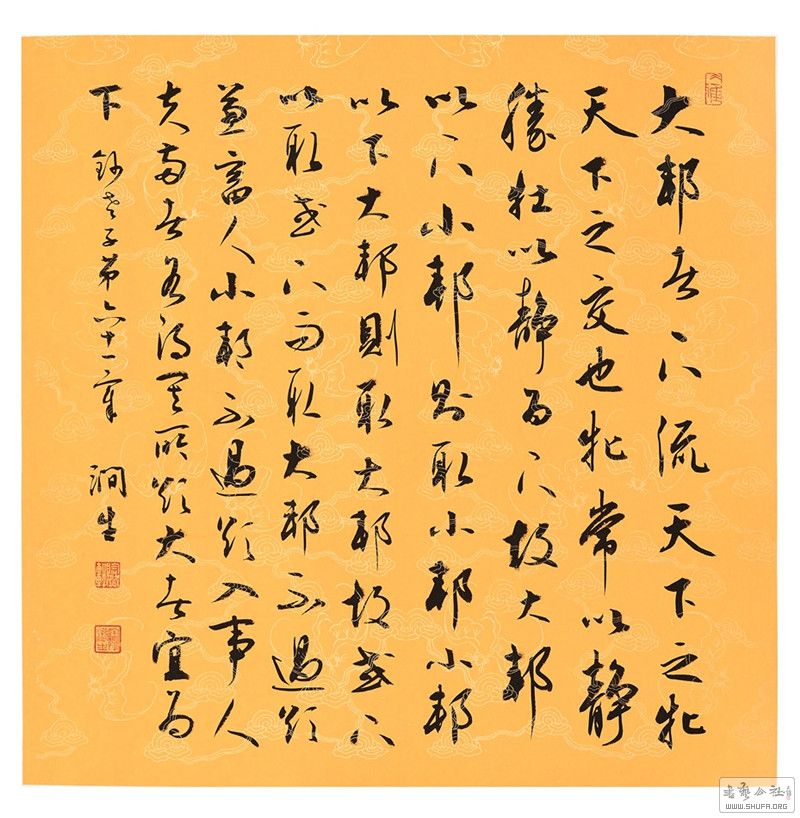 大邦者下流天下之牝
天下之交也牝常以靜
勝牡以靜為下故大邦
以下小邦則取小邦小邦
以下大邦則取大邦故或下
以取或下而取大邦不過欲
兼畜人小邦不過欲入事人
夫兩者各得其所欲大者宜為
下 鈔老子第六十一章 澗生
書藝公社
WWW.SHUFA.ORG